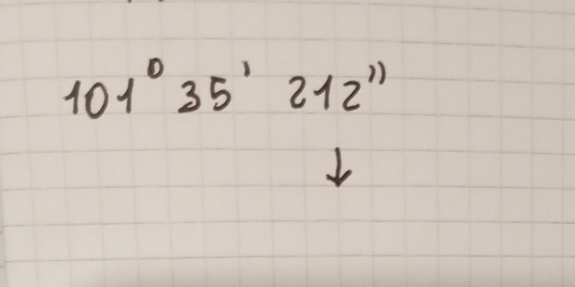 101° 35' 212"
↓